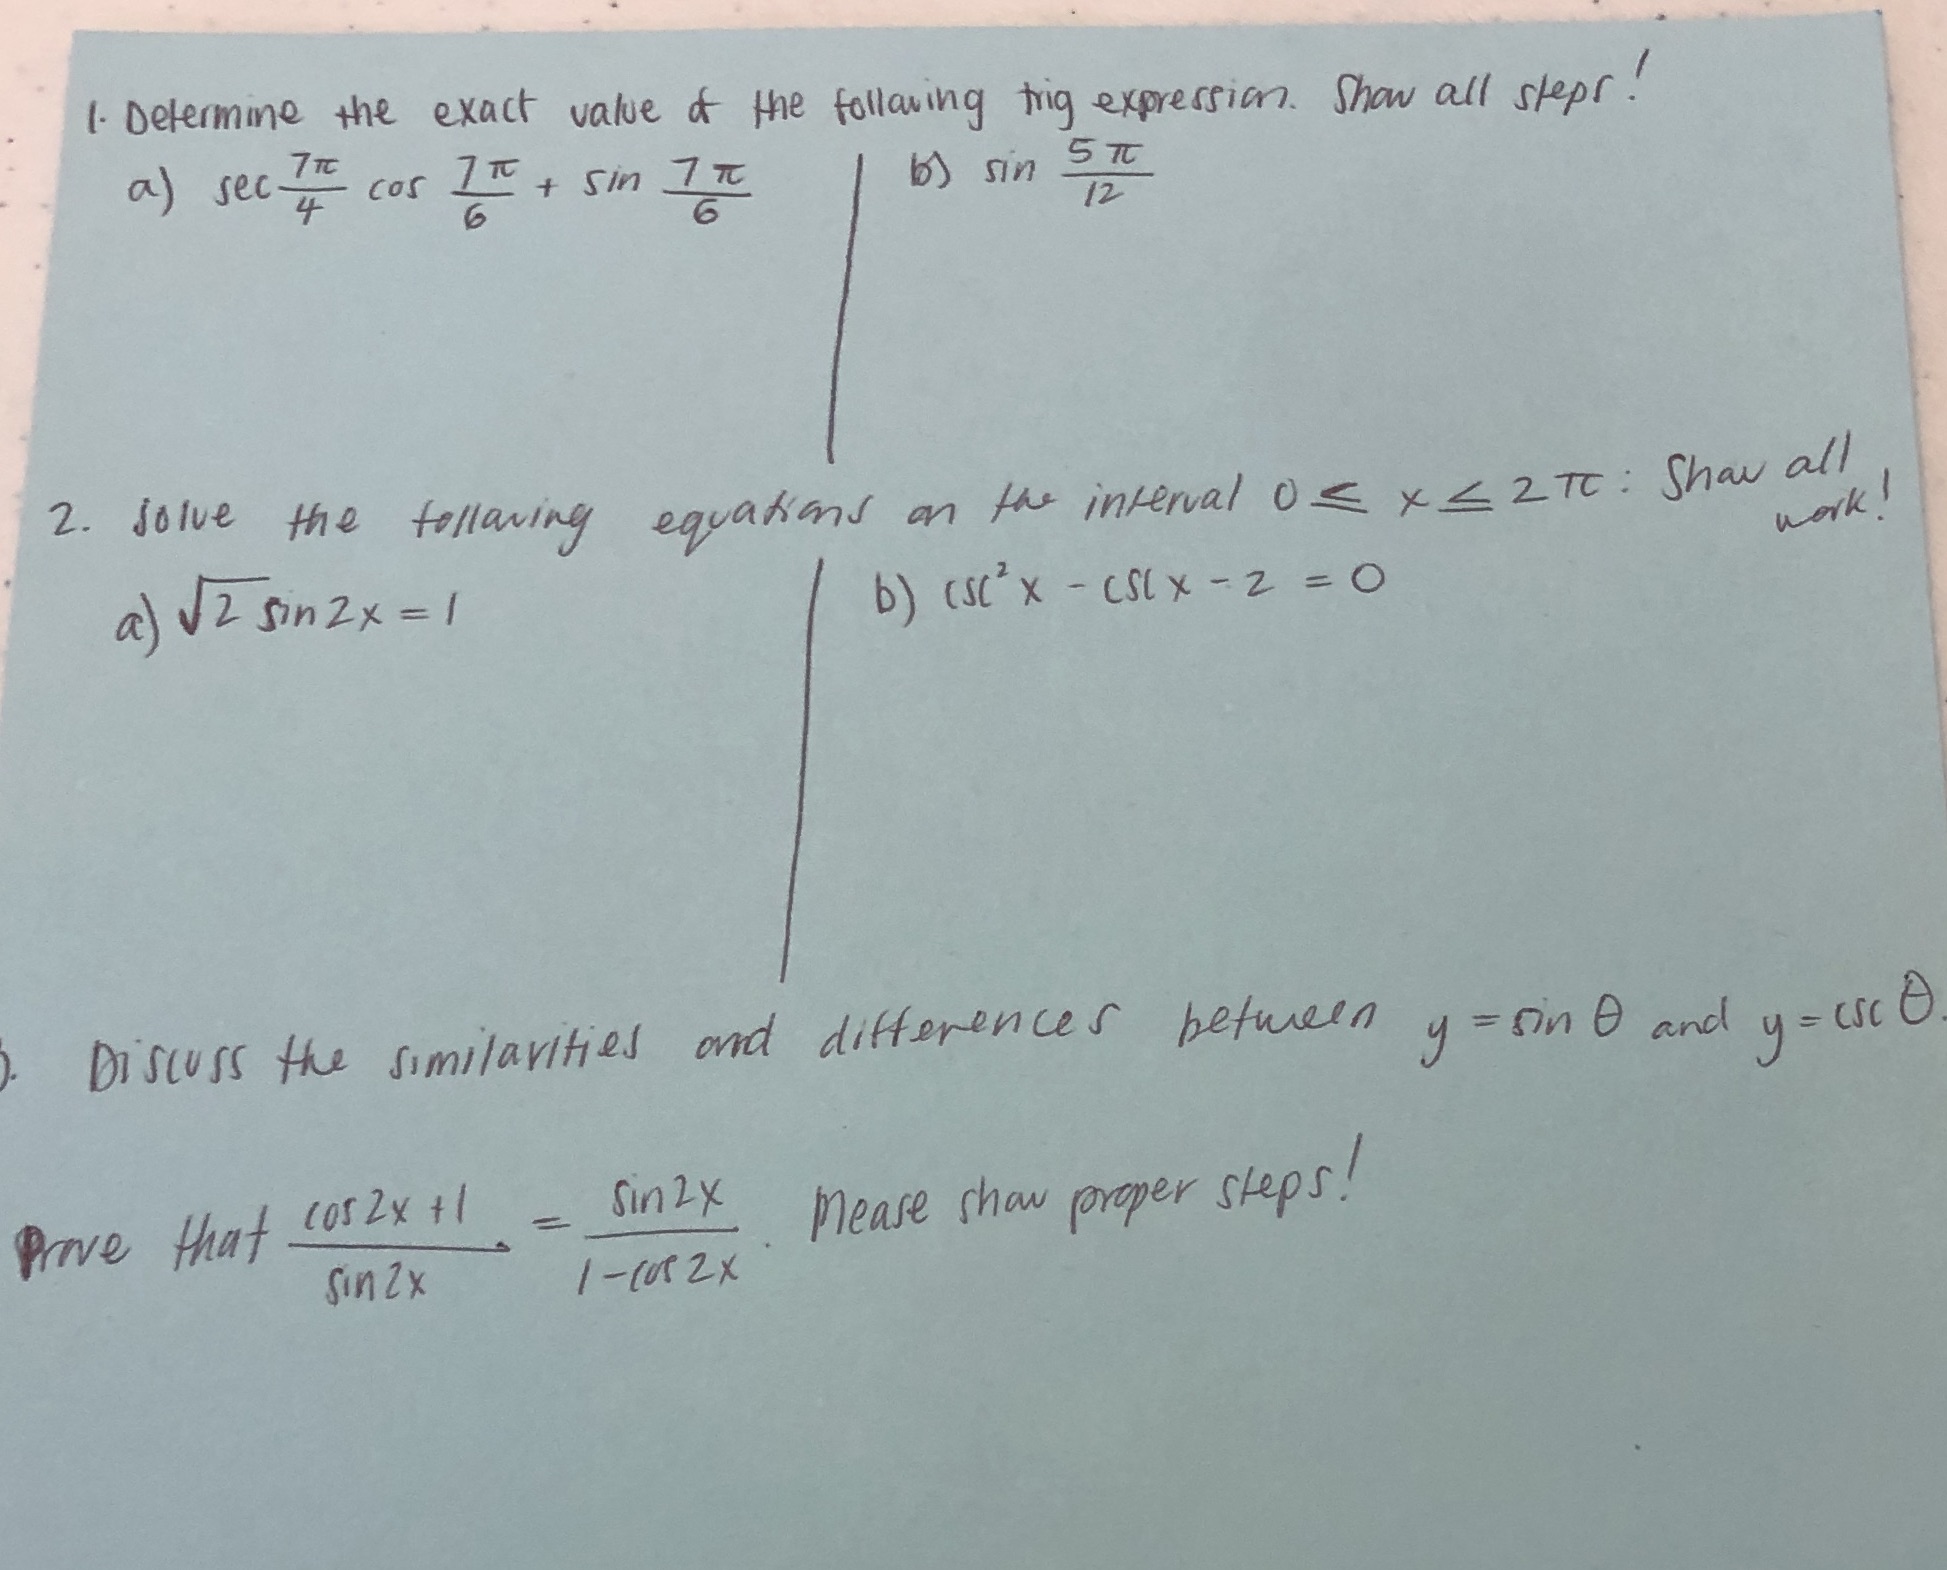 1. Determine the exact value of the following trig expression. Show all steps!
a) sec 7π/4 cos 7π/6 + sin 7π/6
b) sin 5π/12
2. Solve the following equations on the interval 0 ≤ x ≤ 2π: Show all work!
a) √2 sin2x = 1
b) csc²x - cscx - 2 = 0
Discuss the similarities and differences between y = sin θ and y = csc θ.
Prove that (cos2x + 1)/(sin2x) = (sin2x)/(1-cos2x). Please show proper steps!